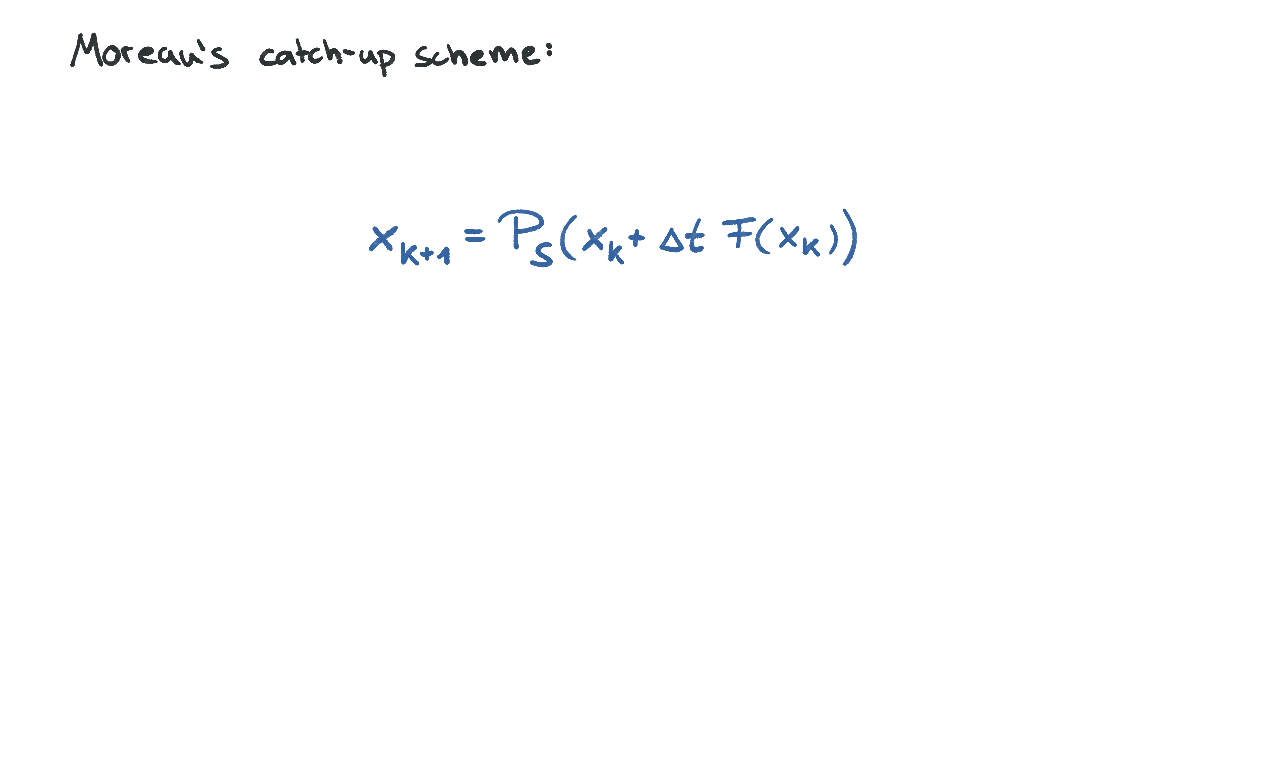 Moreau's catch-up scheme:
x_{k+1} = P_S(x_k + Δt F(x_k))